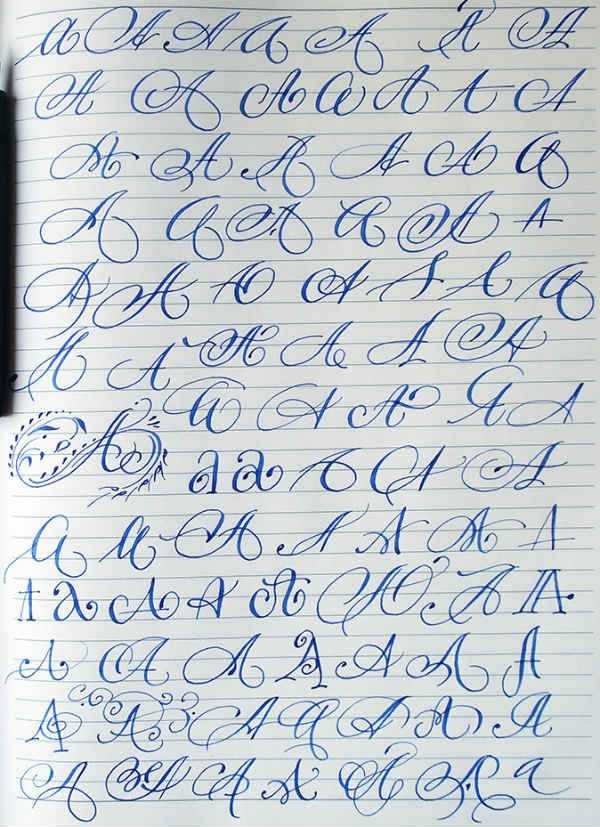 a A A a A A A
A A A a A A A
A A A A A a
A a A A A A
A A A A A A a
A A A A A A
A A A A A
A a a A A A
a a A A A A A
A a A A A A A A
A A A A A A A
A A A A A A A
A A A A A A a